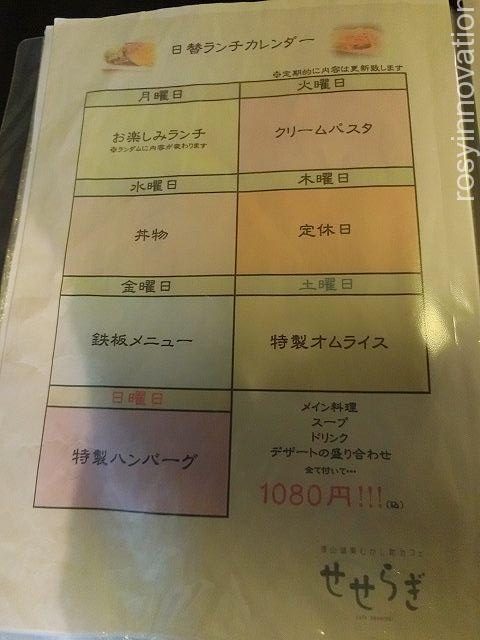 日替ランチカレンダー
※定期的に内容は更新致します
月曜日
火曜日
お楽しみランチ
※ランダムに内容が変わります
クリームパスタ
水曜日
木曜日
丼物
定休日
金曜日
土曜日
鉄板メニュー
特製オムライス
日曜日
特製ハンバーグ
メイン料理
スープ
ドリンク
デザートの盛り合わせ
全て付いて・・・
1080円!!!(込)
せせらぎ
rosyinnovation